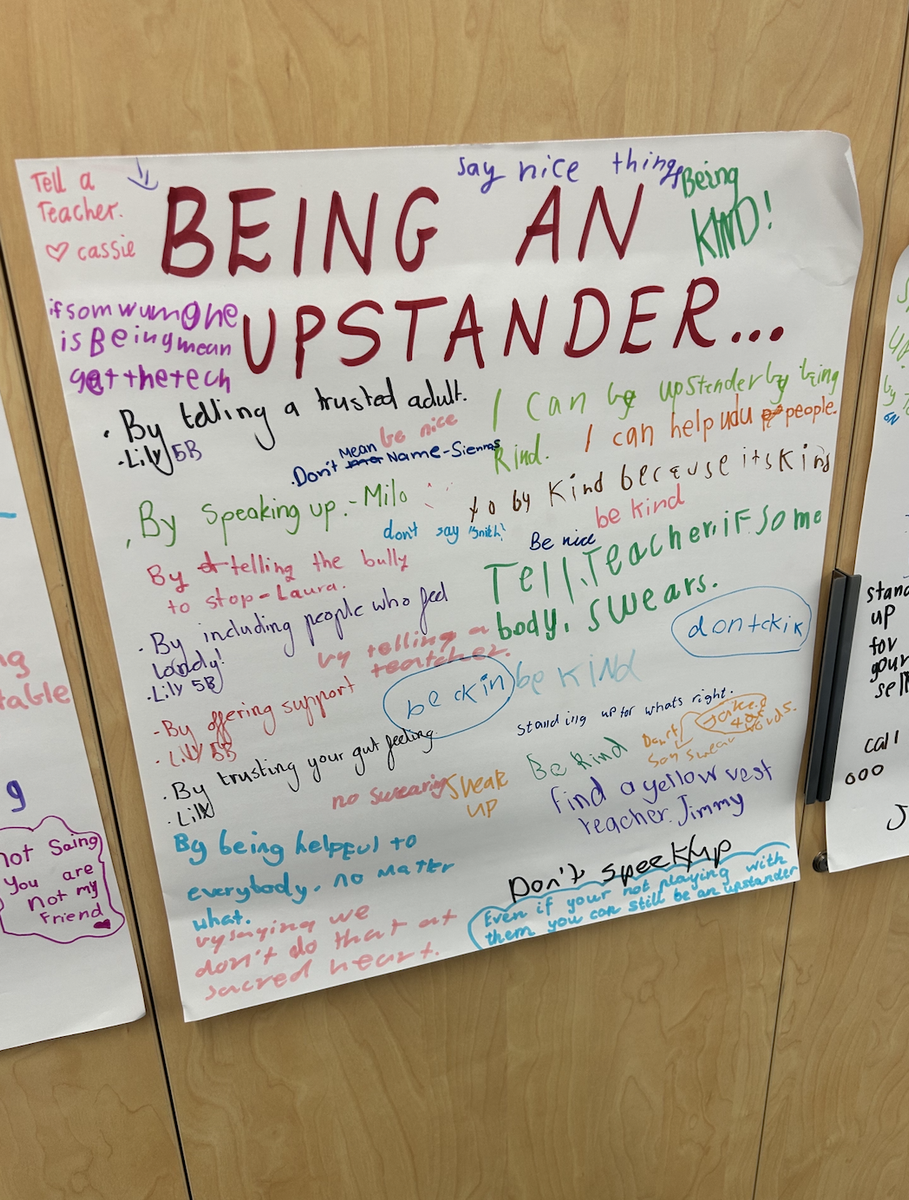 Tell a
Teacher.
♡ cassie
say nice things
Being
KIND!
BEING AN
UPSTANDER...
is Being mean
get the tech
. By telling a trusted adult.
-Lily 5B
be nice
.Don't Mean Name-Siennas
I can be upstender by being
Kind.
I can help people.
. By Speaking up.-Milo
to by Kind because its Kind
don't say
be kind
Be nice
By telling the bully
to stop-Laura.
Tell. Teacher. if some
body. swears.
- By including people who feel
lonely!
-Lily 5B
by telling a
teartcher.
dontckin
be ckin
be kind
-By offering support
- Lily 5B
standing up for whats right.
Don't
say swear words.
. By trusting your gut feeling.
- Lily
no swearing
Speak
up
Be Kind
find a yellow vest
teacher. Jimmy
By being helpful to
everybody. no matter
what.
Don't speek up
by saying we
don't do that at
sacred heart.
Even if your not playing with
them you can still be an upstander
table
g
not Saing
You are
Not my
Friend
stand
up
for
your
self
call
000
J